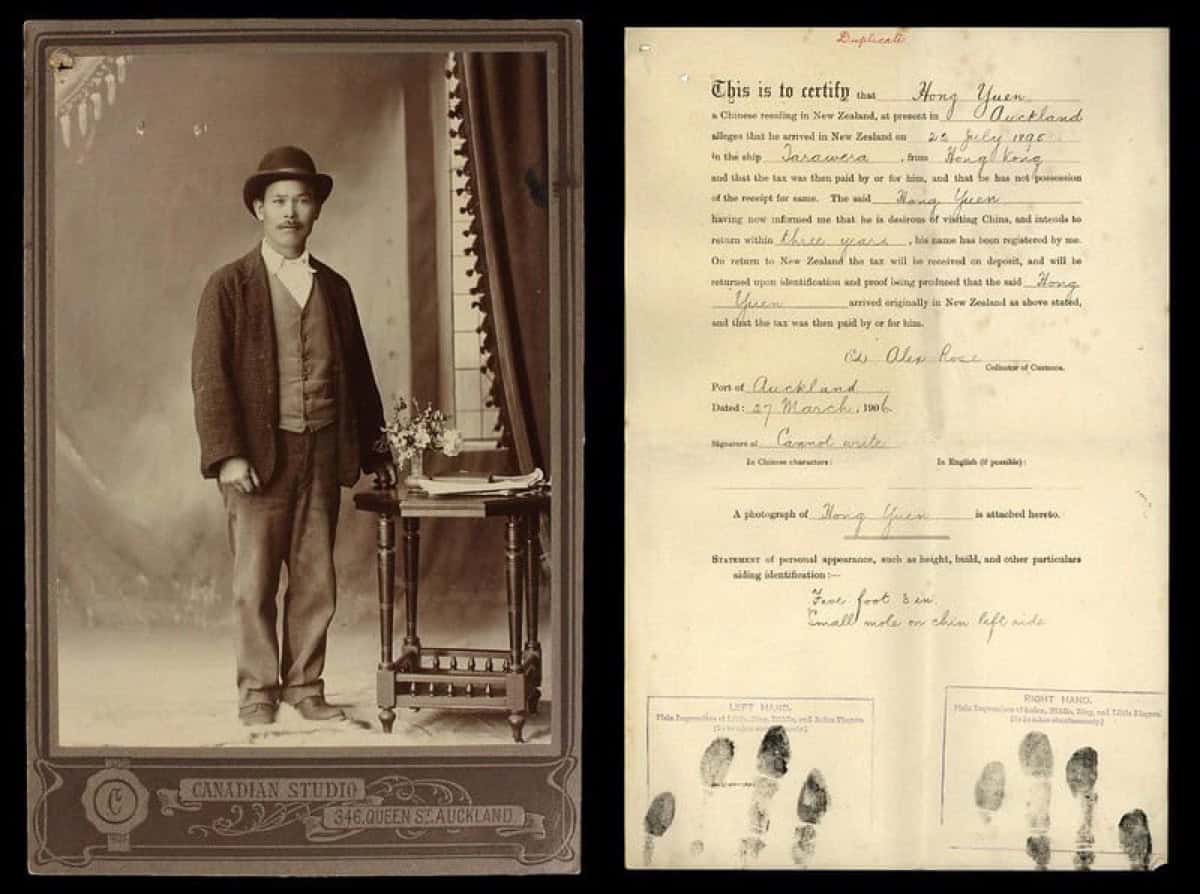 C
CANADIAN STUDIO
346, QUEEN ST. AUCKLAND.
Duplicate
This is to certify that Hong Yuen
a Chinese residing in New Zealand, at present in Auckland
alleges that he arrived in New Zealand on July 1896
in the ship Tarawera, from Hong Kong
and that the tax was then paid by or for him, and that he has not possession
of the receipt for same. The said Hong Yuen
having now informed me that he is desirous of visiting China, and intends to
return within three years, his name has been registered by me.
On return to New Zealand the tax will be received on deposit, and will be
returned upon identification and proof being produced that the said Hong
Yuen arrived originally in New Zealand as above stated,
and that the tax was then paid by or for him.
Alex Rose
Collector of Customs.
Port of Auckland
Dated: 27 March, 1906
Signature of Cannot write
In Chinese characters: In English (if possible):
A photograph of Hong Yuen is attached hereto.
STATEMENT of personal appearance, such as height, build, and other particulars
aiding identification:—
Five foot 3 in.
Small mole on chin left side
LEFT HAND.
Plain Impressions of Little, Ring, Middle, and Index Fingers
(to be taken simultaneously)
RIGHT HAND.
Plain Impressions of Index, Middle, Ring, and Little Fingers
(to be taken simultaneously)